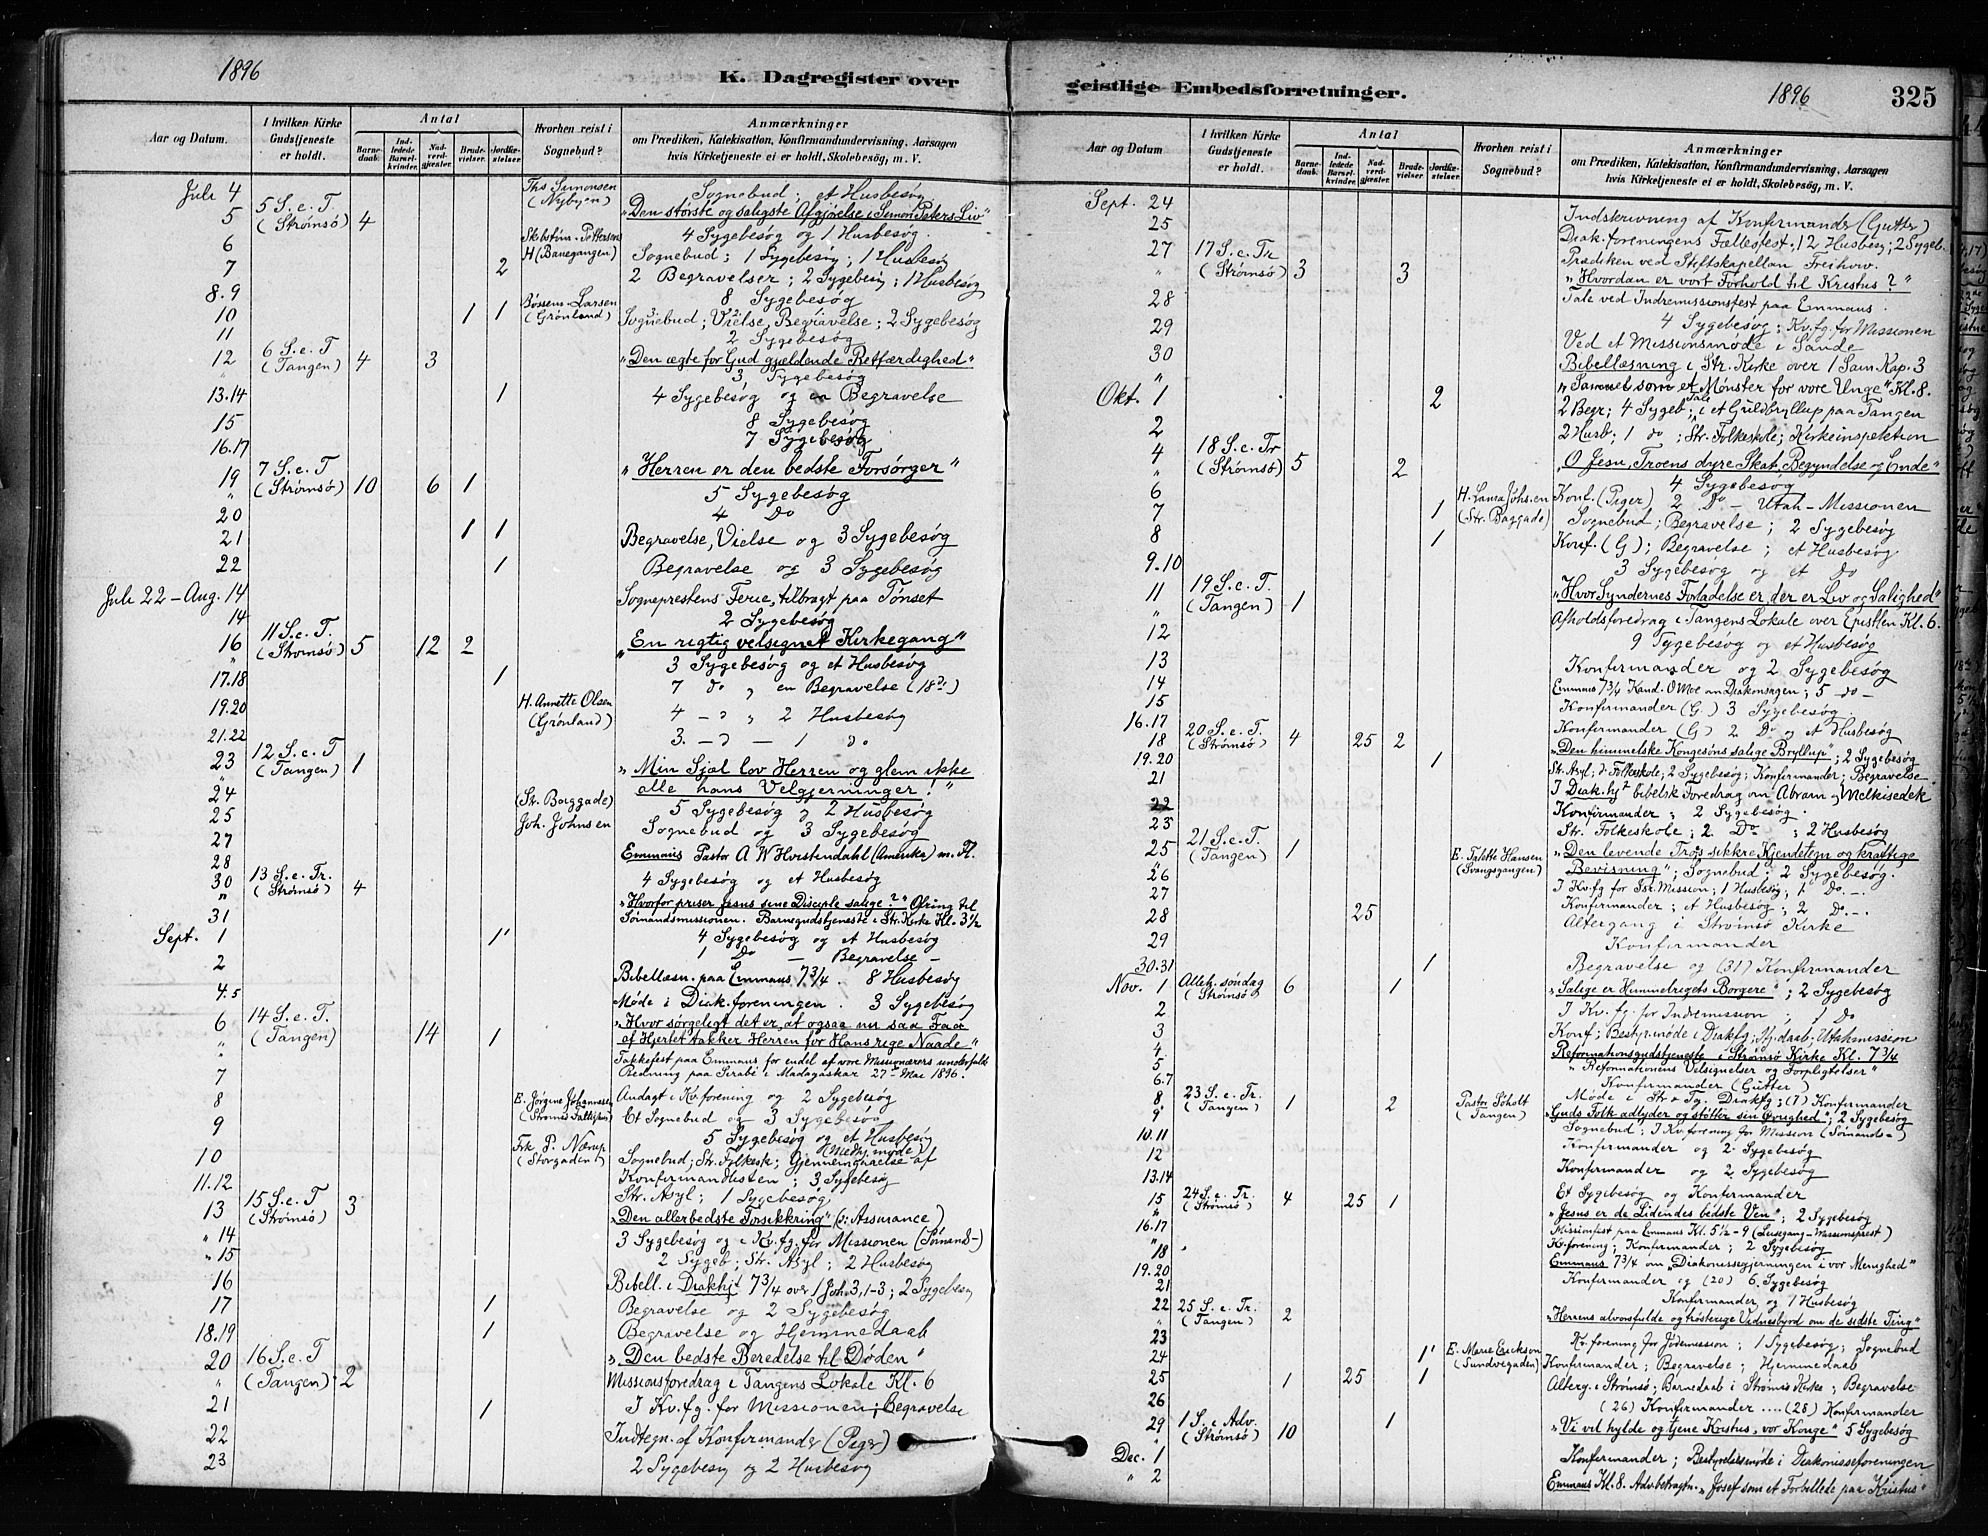 1896
K. Dagregister over
Aar og Datum.
I hvilken Kirke Gudstjeneste er holdt.
Antal
Barnedaab.
Indledede Barselkvinder.
Nadverdgjæster.
Brudevielser.
Jordfæstelser.
Hvorhen reist i Sognebud?
Anmærkninger
om Prædiken, Katekisation, Konfirmandundervisning, Aarsagen
hvis Kirketjeneste ei er holdt, Skolebesøg, m. V.
Juli 4 Ths Simonsen (Nybyen) Sognebud; et Husbesøg
5 5 S. e. T. (Strømsø) 4 "Den største og saligste Afgjørelse i Simon Peters Liv"
4 Sygebesøg og 1 Husbesøg.
6 H (Banegangen) Sognebud; 1 Sygebesøg; 1 Husbesøg
7 2 2 Begravelser; 2 Sygebesøg; 1 Husbesøg
8.9 8 Sygebesøg
10 1 1 Larsen (Grønland) Sognebud; Vielse, Begravelse; 2 Sygebesøg
11 2 Sygebesøg
12 6 S. e. T (Tangen) 4 3 "Den ægte for Gud gjældende Retfærdighed"
" 3 Sygebesøg
13.14 1 4 Sygebesøg og en Begravelse
15 8 Sygebesøg
16.17 7 Sygebesøg
19 7 S. e. T (Strømsø) 10 6 1 "Herren er den bedste Forsørger"
" 5 Sygebesøg
20 4 Do
21 1 1 Begravelse, Vielse og 3 Sygebesøg
22 1 Begravelse og 3 Sygebesøg
Juli 22 – Aug. 14 Sogneprestens Ferie, tilbragt paa Tønset
14 2 Sygebesøg
16 11 S. e. T. (Strømsø) 5 12 2 "En rigtig velsignet Kirkegang"
" 3 Sygebesøg og et Husbesøg
17.18 1 7 do " en Begravelse (18de)
19.20 H. Annette Olsen (Grønland) 4 – " " 2 Husbesøg
21.22 3. – d – 1 do
23 12 S. e. T (Tangen) 1 "Min Sjæl lov Herren og glem ikke
alle hans Velgjerninger!"
24 (Str. Baggade) 5 Sygebesøg og 2 Husbesøg
25 Joh. Johnsen Sognebud og 3 Sygebesøg
27 Emmaus Pastor A W (Amerika) m. Fl.
28 4 Sygebesøg og et Husbesøg
30 13 S. e. Tr. (Strømsø) 4 "Hvorfor priser Jesus sine Disciple salige?" Ofring til
" Sømandsmissionen. Barnegudstjeneste i Str. Kirke Kl. 3½
31 4 Sygebesøg og et Husbesøg
Sept. 1 1 1 Do – Begravelse –
2 Bibellæsn. paa Emmaus 7 3/4. 8 Husbesøg
4.5 Møde i Diak. foreningen. 3 Sygebesøg
6 14 S. e. T. (Tangen) 14 1 "Hvor sørgeligt det er, at ogsaa nu saa Faa
af Hjertet takker Herren for Hans rige Naade"
" Takkefest paa Emmaus for endel af vore Missionærers underfulde
7 Redning paa Sirabe i Madagaskar 27de Mai 1896.
8 E. Jørgine Johannesen Andagt i Kv. forening og 2 Sygebesøg
9 Et Sognebud og 3 Sygebesøg
5 Sygebesøg og et Husbesøg
10 Frk P. Nærup (Storgaden) Sognebud; Str. Folkesk; Gjennemgaaelse af
11.12 Konfirmandlisten; 3 Sygebesøg
Str. Asyl; 1 Sygebesøg
13 15 S. e. T (Strømsø) 3 "Den allerbedste Forsikkring" (ɔ: Assurance)
" 14 3 Sygebesøg og i Kv. fg. for Missionen (Sømands-)
" 15 2 Sygeb; Str. Asyl; 2 Husbesøg
16 Bibell. i Diakhj. 7 3/4 over 1 Joh. 3, 1-3; 2 Sygebesøg
17 1 Begravelse og 2 Sygebesøg
18.19 1 Begravelse og Hjemmedaab
20 16 S. e. T (Tangen) 2 "Den bedste Beredelse til Døden"
" Missionsforedrag i Tangens Lokale Kl. 6
21 1 I Kv. fg. for Missionen; Begravelse
22 Indtegn. af Konfirmander (Piger)
23 2 Sygebesøg og 2 Husbesøg
geistlige Embedsforretninger.
1896
325
Aar og Datum
I hvilken Kirke Gudstjeneste er holdt.
Antal
Barnedaab.
Indledede Barselkvinder.
Nadverdgjæster.
Brudevielser.
Jordfæstelser.
Hvorhen reist i Sognebud?
Anmærkninger
om Prædiken, Katekisation, Konfirmandundervisning, Aarsagen
hvis Kirketjeneste ei er holdt, Skolebesøg, m. V.
Sept. 24 Indskrivning af Konfirmander (Gutter)
25 Diak. foreningens Fællesfest, 12 Husbesøg; 2 Sygeb.
27 17 S. e. Tr (Strømsø) 3 3 Prædiken ved Stiftskapellan Freihow.
" "Hvordan er vort Forhold til Kristus?"
28 Tale ved Indremissionsfest paa Emmaus.
29 4 Sygebesøg; Kv. fg. for Missionen
30 Ved et Missionsmøde i Sande
" Bibellæsning i Str. Kirke over 1 Sam. Kap. 3
"Samuel som et Mønster for vore Unge" Kl. 8.
Okt. 1 2 2 Begr; 4 Sygeb; Tale i et Guldbryllup paa Tangen
2 2 Husb; 1 do; Str. Folkeskole; Kirkeinspektion
4 18 S. e. Tr (Strømsø) 5 2 "O Jesu, Troens dyre Skat, Begyndelse og Ende"
4 Sygebesøg
6 Konf. (Piger) 2 Do – Utah-Missionen
7 1 H. Laura Johnsen (Str. Baggade) Sognebud; Begravelse; 2 Sygebesøg
8 1 Konf. (G); Begravelse; et Husbesøg
9.10 3 Sygebesøg og et Do
11 19 S. e. T. (Tangen) 1 "Hvor Syndernes Forladelse er, der er Liv og Salighed"
" Afholdsforedrag i Tangens Lokale over Epistlen Kl. 6.
12 9 Sygebesøg og et Husbesøg
13 Konfirmander og 2 Sygebesøg
14 Emmaus 7 3/4 Kand. O Moe om Diakonsagen; 5 do
15 Konfirmander (G.) 3 Sygebesøg.
16.17 Konfirmander (G) 2 Do og et Husbesøg
18 20 S. e. T. (Strømsø) 4 25 2 "Den himmelske Kongesøns salige Bryllup"; 2 Sygebesøg
19.20 1 Str. Asyl; d. Folkeskole; 2 Sygebesøg; Konfirmander; Begravelse
21 I Diak. hj. bibelsk Foredrag om Abram og Melkisedek
22 Konfirmander, 2 Sygebesøg.
23 Str. Folkeskole; 2 Do; 2 Husbesøg
25 21 S. e. T. (Tangen) 1 E. Talette Hansen (Svangsgangen) "Den levende Tros sikkre Kjendetegn og kraftige
26 Bevisning"; Sognebud; 2 Sygebesøg.
27 I Kv. fg for Isr. Mission; 1 Husbesøg; 1 Do. –
28 25 Konfirmander; et Husbesøg; 2 Do. –
29 Altergang i Strømsø Kirke
Konfirmander
30.31 1 Begravelse og (31) Konfirmander
Nov. 1 Alleh. søndag (Strømsø) 6 1 "Salige er Himmelrigets Borgere"; 2 Sygebesøg
2 I Kv. fg. for Indremission, 1 Do
3 Konf; Bestyr. møde i Diakfg; Hj. daab; Utahmission
4 Reformationsgudstjeneste i Strømsø Kirke Kl. 7 3/4
5 "Reformationens Velsignelser og Forpligtelser"
6.7 Konfirmander (Gutter)
Møde i Str & Tg. Diakfg; (7) Konfirmander
8 23 S. e. Tr. (Tangen) 1 2 Pastor Søholt (Tangen) "Guds Folk adlyder og støtter sin Øvrighed"; 2 Sygebesøg
9 Sognebud; I Kv. forening for Mission (Sømands-)
10.11 Konfirmander og 2 Sygebesøg
12 Konfirmander og 2 Sygebesøg
13.14 Et Sygebesøg og Konfirmander
15 24 S. e. Tr. (Strømsø) 4 25 1 "Jesus er de Lidendes bedste Ven"; 2 Sygebesøg
" Missionsfest paa Emmaus Kl. 5½ – 9 (Leisegang – Missionsprest)
16.17 Kv. forening; Konfirmander; 2 Sygebesøg
18 Emmaus 7 3/4 om "Diakonissegjerningen i vor Menighed"
19.20 Konfirmander og (20) 6. Sygebesøg
21 Konfirmander og 1 Husbesøg
22 25 S. e. Tr. (Tangen) 2 "Herrens alvorsfulde og trøsterige Vidnesbyrd om de sidste Ting"
23 Kv. forening for Jødemission; 1 Sygebesøg; Sognebud
24 1 E. Marie Erickson (Sundvegaden) Konfirmander; Begravelse; Hjemmedaab
25 1 25 1 Alterg. i Strømsø; Barnedaab i Strømsø Kirke; Begravelse
26 (26) Konfirmander .... (28) Konfirmander
29 1 S. i Adv. (Strømsø) 10 1 "Vi vil hylde og tjene Kristus, vor Konge" 5 Sygebesøg
Dec. 1 Konfirmander; Bestyrelsesmøde i Diakonisseforeningen
" 2 Emmaus Kl. 8. Adv. betragtn. "Josef som et Forbillede paa Kristus"